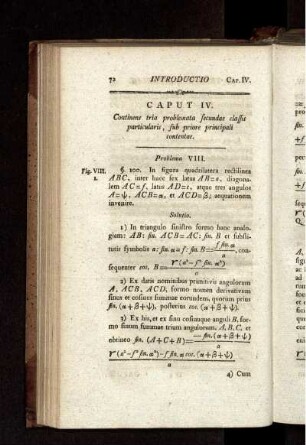 72 INTRODUCTIO CAP. IV.
CAPUT IV.
Continens tria problemata secundae classis
particularis, sub priore principali
contentae.
Problema VIII.
Fig. VIII. §. 100. In figura quadrilatera rectilinea
1. ABC, inter haec sex latus AB=a, diagona-
lem AC=f, latus AD=z, atque tres angulos
A=ψ, ACB=α, et ACD=β; aequationem
invenire.
Solutio.
1) In triangulo sinistro formo hanc analo-
giam: AB: sin. ACB=AC: sin. B et substi-
tutis symbolis a: sin. α=f: sin. B= f sin. α / a, con-
sequenter cos. B= √(a²-f² sin. α²) / a
2) Ex datis nominibus primitivis angulorum
A, ACB, ACD, formo nomen derivativum
sinus et cosinus summae eorundem, quorum prius
sin. (α+β+ψ), posterius cos. (α+β+ψ)
3) Ex his, et ex sinu cosinuque anguli B, for-
mo sinum summae trium angulorum, A, B, C, et
obtineo sin. (A+C+B)= sin. (α+β+ψ) / a
√(a²-f² sin. α²)-f sin. α cos. (α+β+ψ)
a
4) Cum